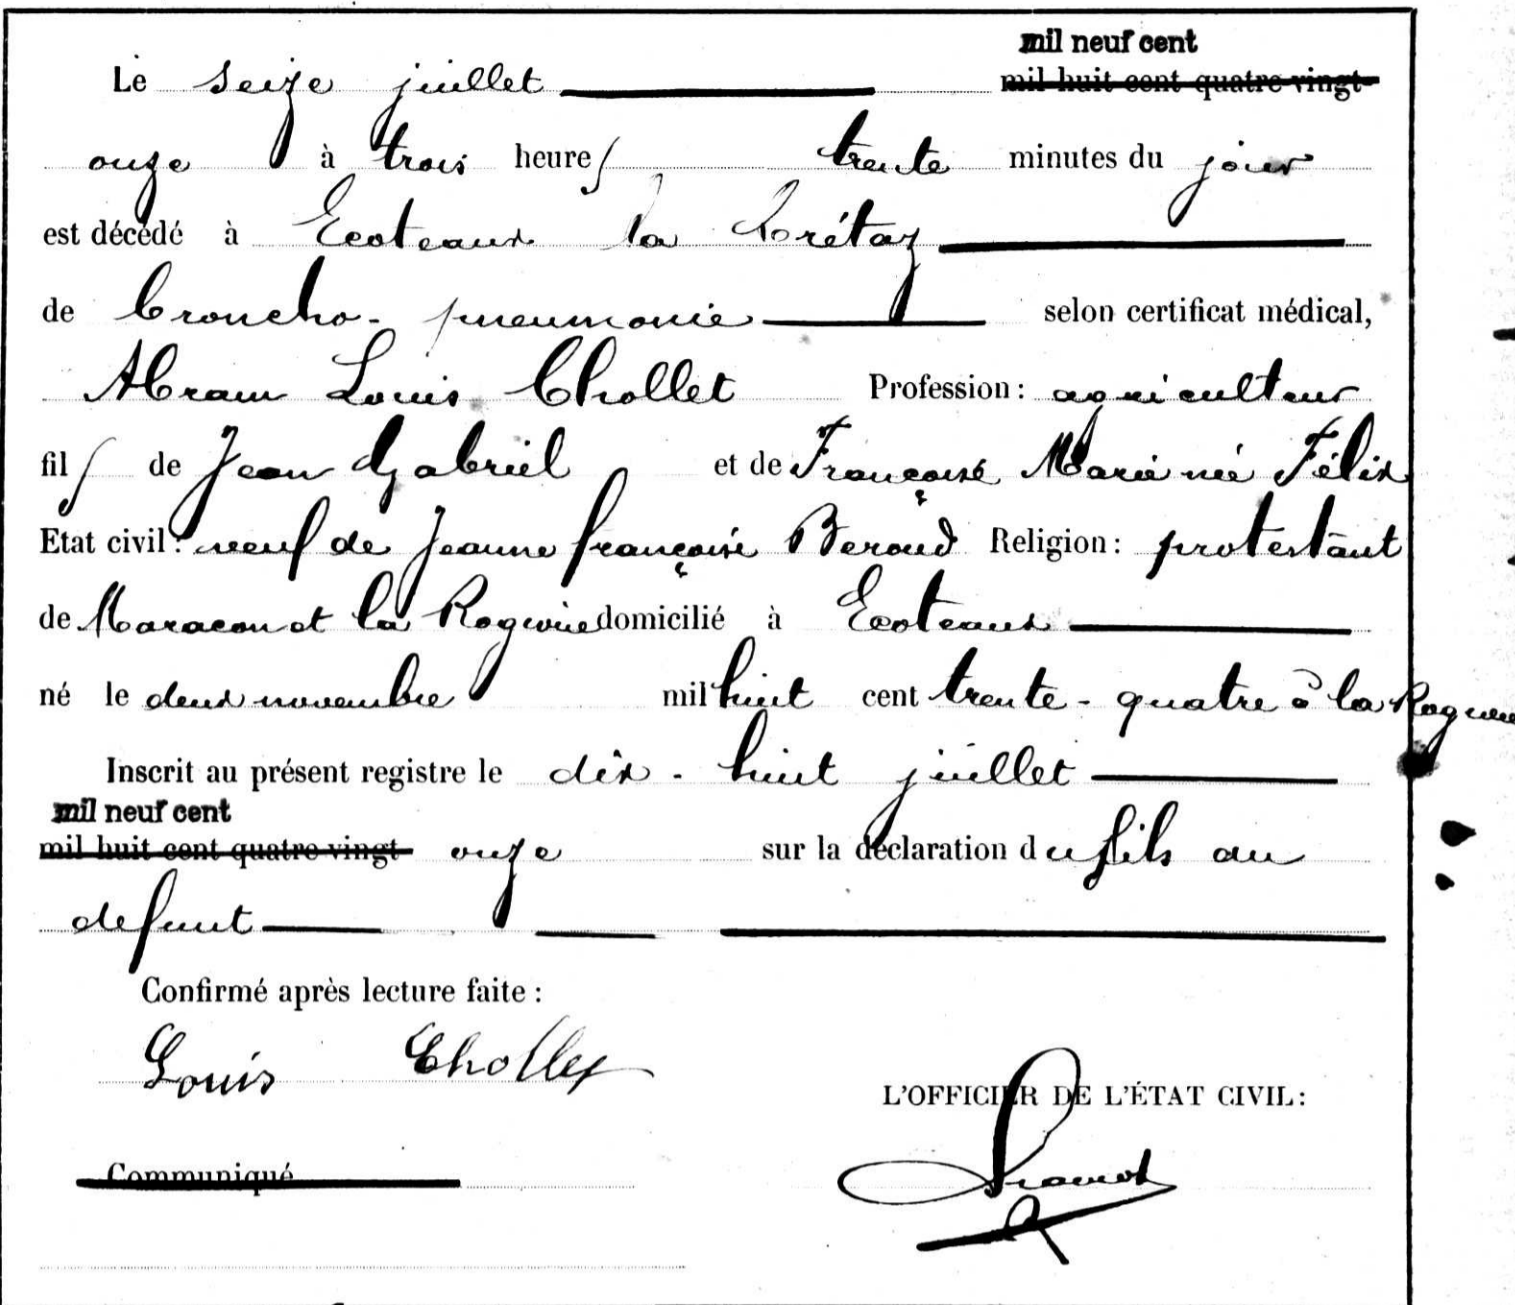 mil neuf cent
Le seize juillet mil huit cent quatre-vingt-
onze à trois heures trente minutes du jour
est décédé à Ecoteaux la Crétaz
de broncho-pneumonie selon certificat médical,
Abram Louis Chollet Profession: agriculteur
fils de Jean Gabriel et de Françoise Marie née Félix
Etat civil: veuf de Jeanne françoise Beroud Religion: protestant
de Maracon et la Rogivue domicilié à Ecoteaux
né le deux novembre mil huit cent trente-quatre à la Rogivue
Inscrit au présent registre le dix-huit juillet
mil neuf cent
mil huit cent quatre-vingt- onze sur la déclaration du fils du
defunt
Confirmé après lecture faite:
Louis Chollet
L'OFFICIER DE L'ÉTAT CIVIL:
Communiqué